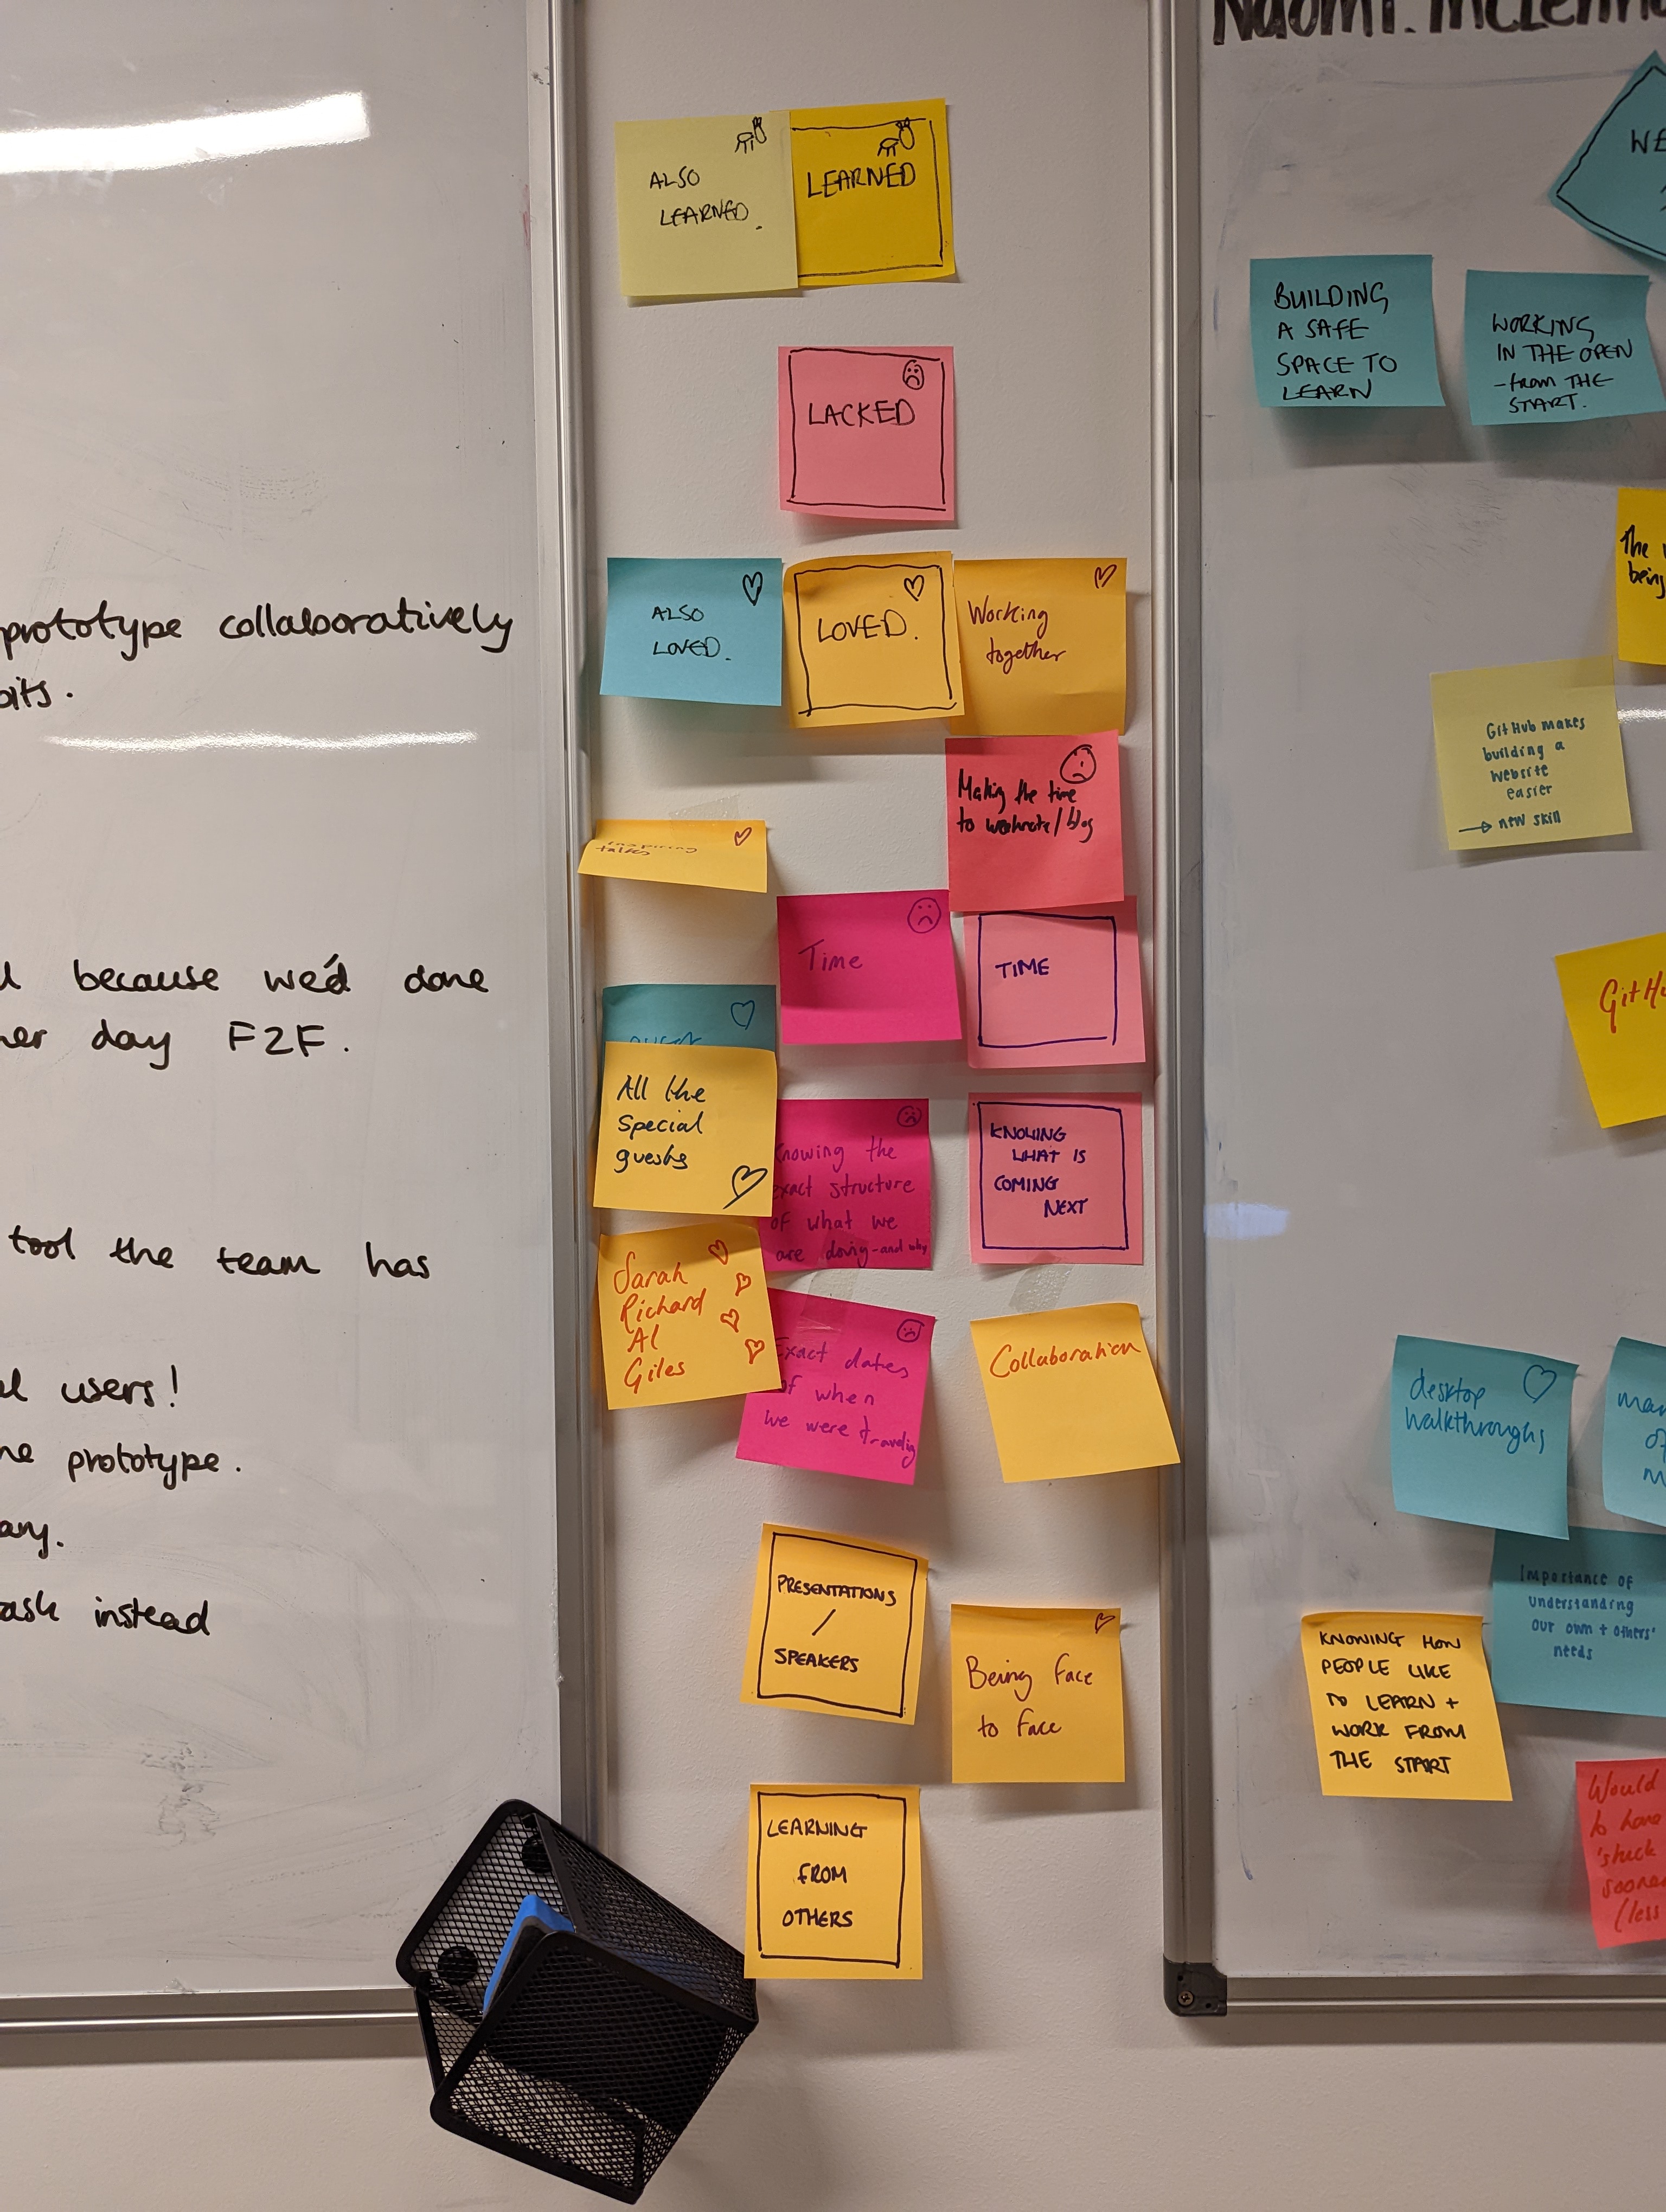 prototype collaboratively
because we'd done
day F2F.
tool the team has
users!
prototype.
ask instead
ALSO
LEARNED.
LEARNED
LACKED
ALSO
LOVED.
LOVED.
Working
together
Making the time
to weeknote/blog
talks
Time
TIME
All the
special
guests
Knowing the
exact structure
of what we
are doing - and why
KNOWING
WHAT IS
COMING
NEXT
Sarah
Richard
Al
Giles
Exact dates
of when
we were traveling
Collaboration
PRESENTATIONS
/
SPEAKERS
Being face
to face
LEARNING
FROM
OTHERS
Naomi.
BUILDING
A SAFE
SPACE TO
LEARN
WORKING
IN THE OPEN
- from THE
START.
The
being
GitHub makes
building a
website
easier
→ new skill
desktop
walkthroughs
Importance of
understanding
our own + others'
needs
KNOWING HOW
PEOPLE LIKE
TO LEARN +
WORK FROM
THE START
Would
to have
'stuck
sooner
(less